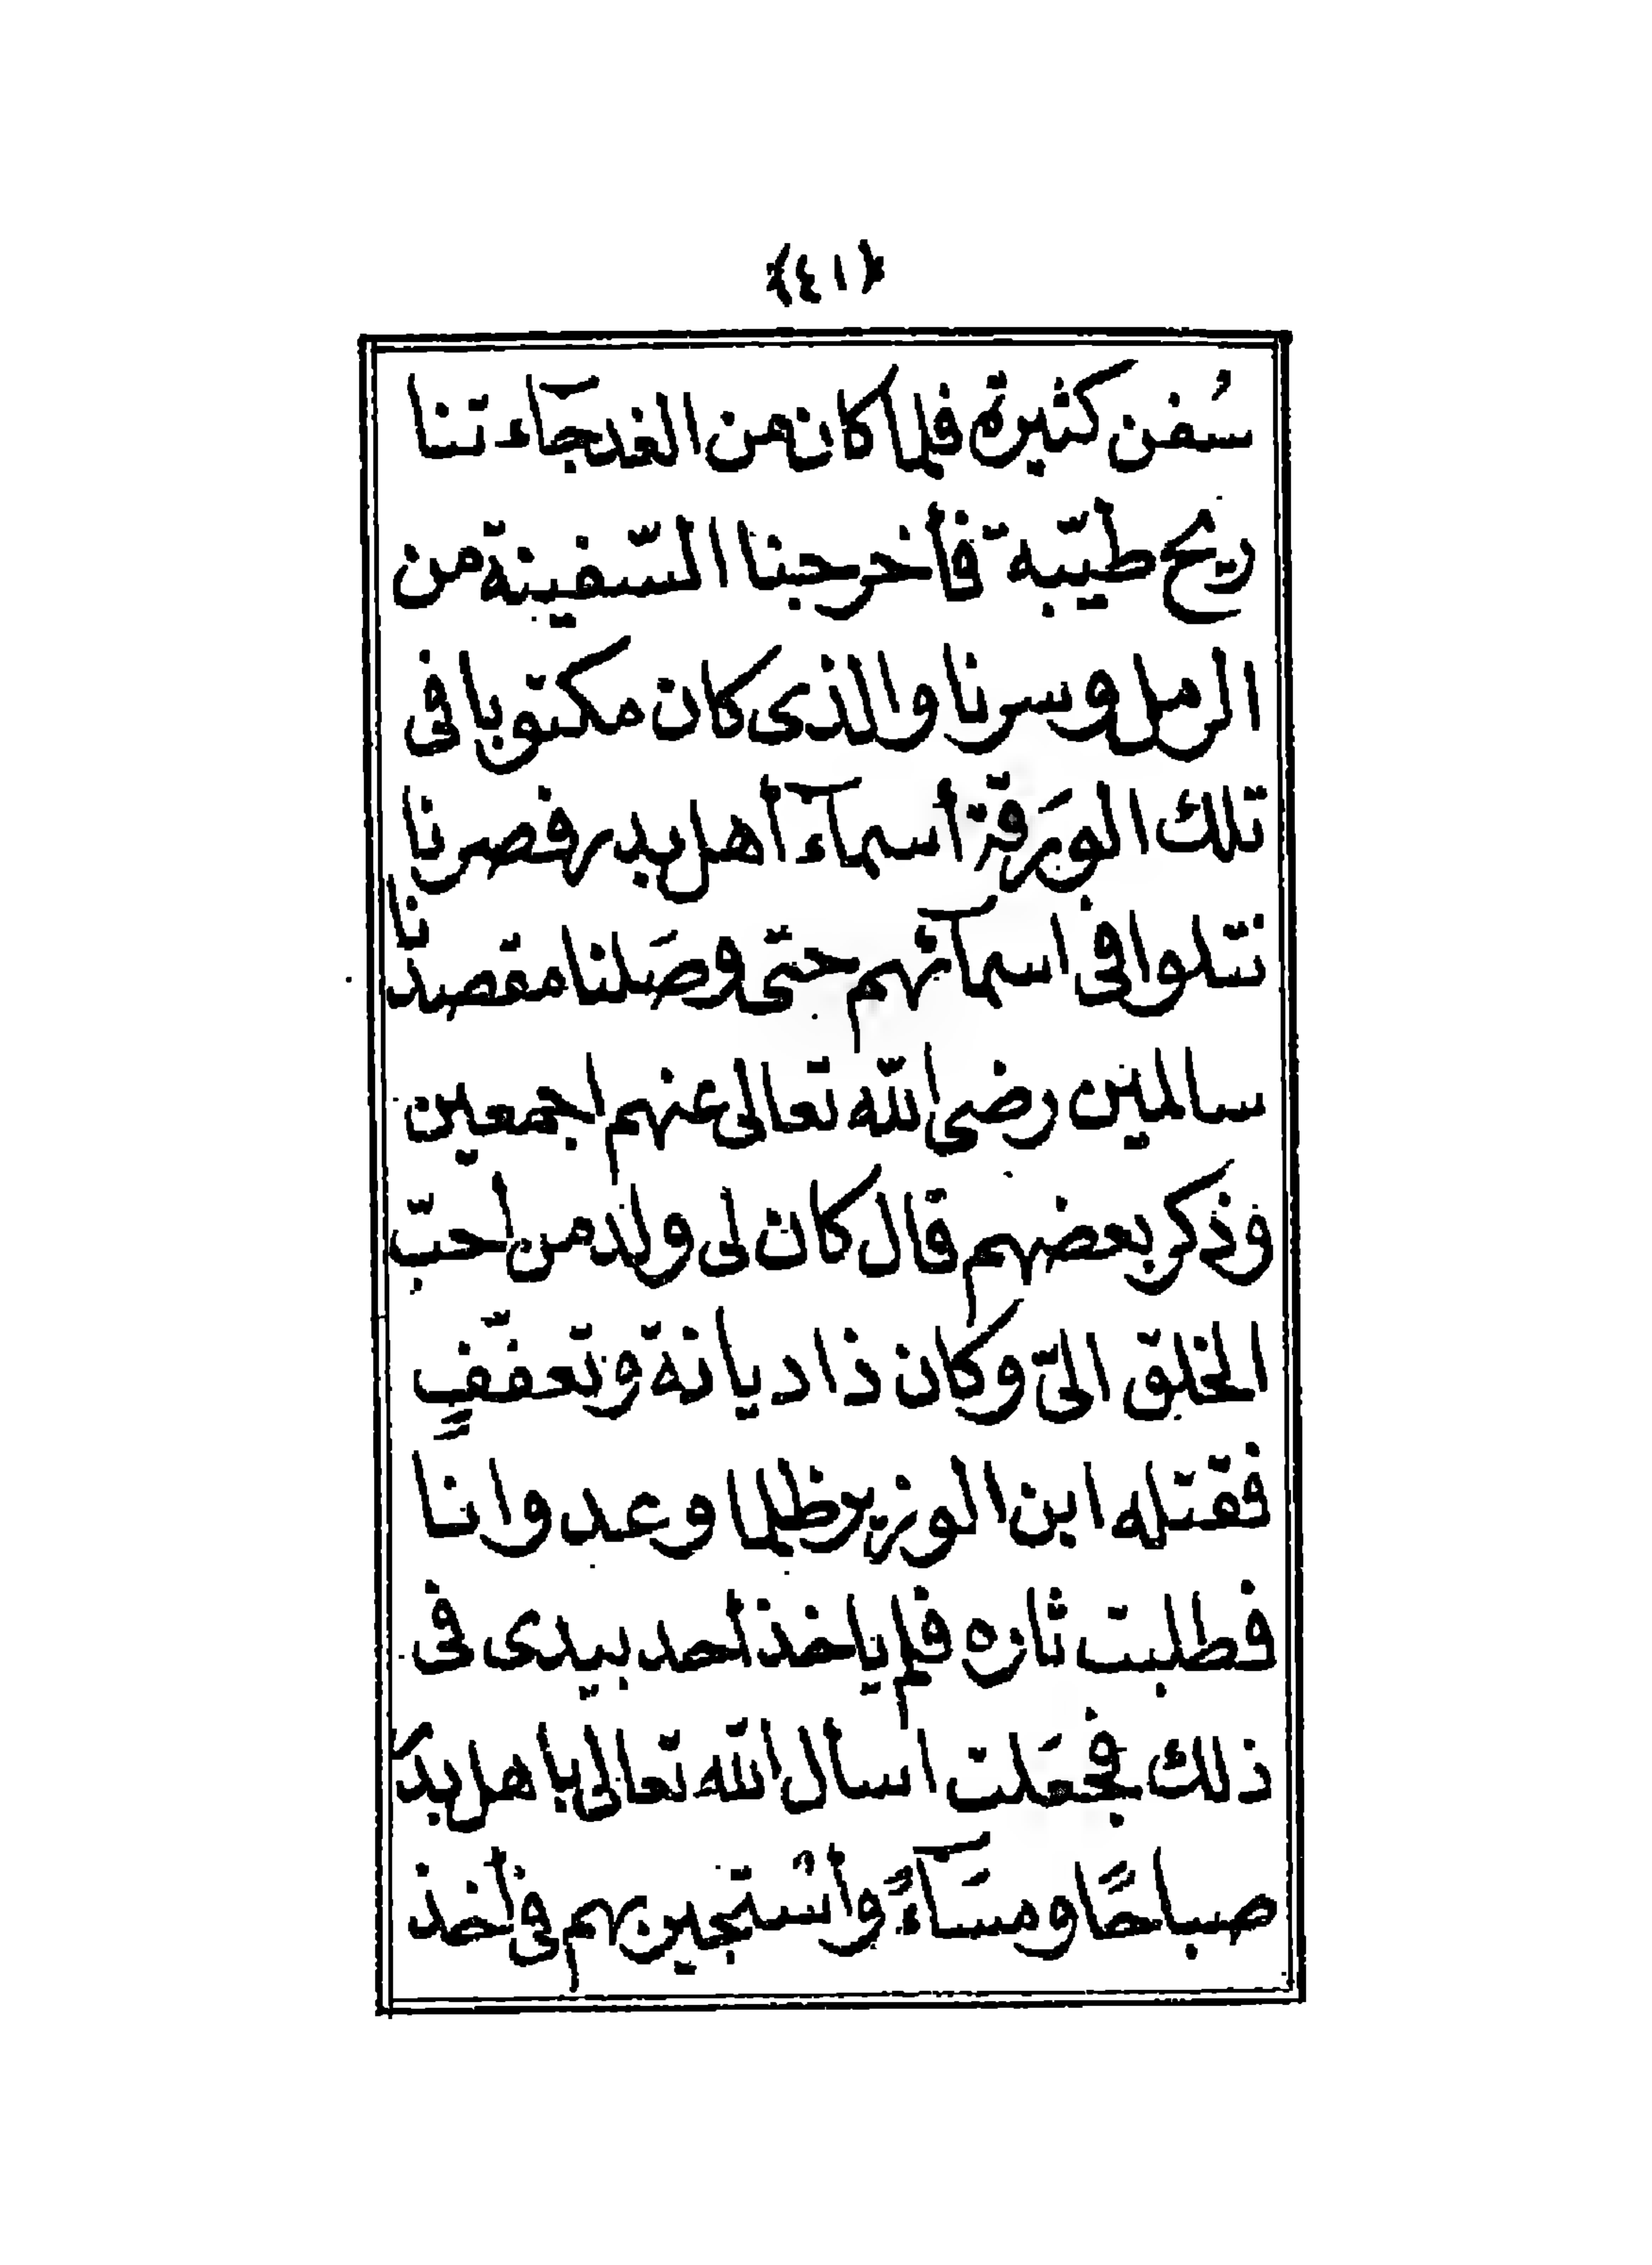 ﴿١٤﴾
سُفن كثيرة فلما كان من الغد جآء تنا
ريح طيّبة فأخرجنا السّفينة من
الرمل وسرنا والذى كان مكتوبا فى
تلك الورَقة أسمآء أهل بدر فصرنا
نتلوا فى اسمآئهم حتى وصَلنا مقصدنا
سالمين رضى الله تعالى عنهم اجمعين
وذكر بعضهم قال كان لى ولد من أحبّ
الخلق الىّ وكان ذا ديانة وتعفّفٍ
فقتله ابن الوزير ظلما وعدوانا
فطلبت ثاره فلم ياخذ أحد بيدى فى
ذلك فجعَلت اسأل الله تعالى باهل بدر
صباحًا ومسَآءً وأسْتجير بهم فى أخذ